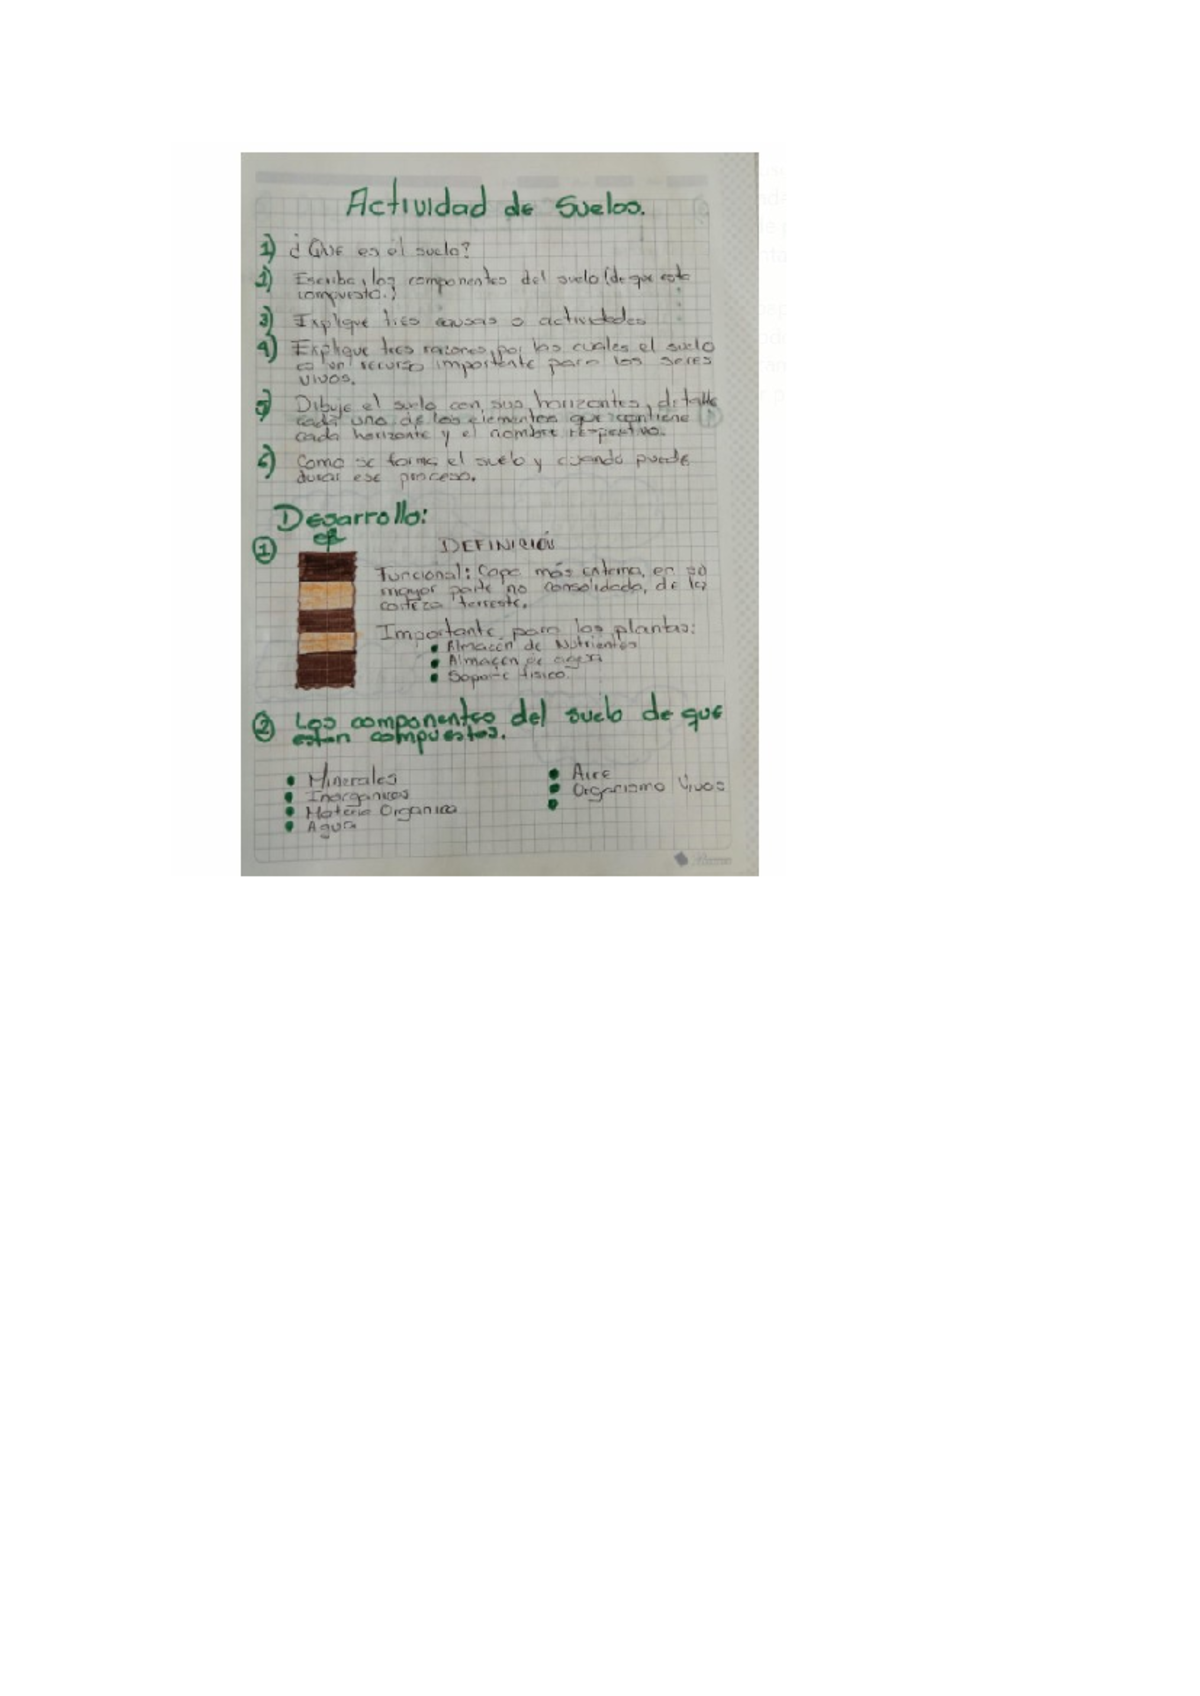 Actividad de Suelos.
1) ¿QUE es el suelo?
2) Escriba los componentes del suelo (de que esta
compuesto.)
3) Explique tres causas o actividades
4) Explique tres razones por las cuales el suelo
es un recurso importante para los seres
vivos.
5) Dibuje el suelo con sus horizontes, detalle
cada uno de los elementos que contiene
cada horizonte y el nombre respectivo.
6) Como se forma el suelo y cuando puede
durar ese proceso.
Desarrollo:
1 DEFINICIÓN
Funcional: Capa más externa, en su
mayor parte no consolidada, de la
corteza terrestre.
Importante para las plantas:
• Almacén de Nutrientes
• Almacén de agua
• Soporte fisico.
2 Los componentes del suelo de que
estan compuestos.
• Minerales
• Inorganicos
• Materia Organica
• Agua
• Aire
• Organismo Vivos
•